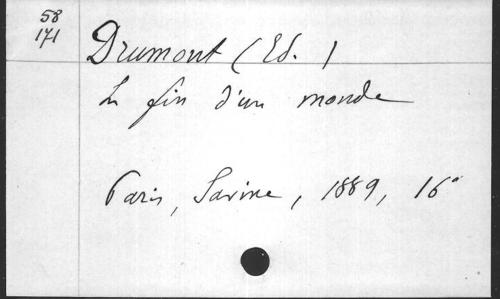 58
171
Drumont (Ed.)
La fin d'un monde
Paris, Savine, 1889, 16°